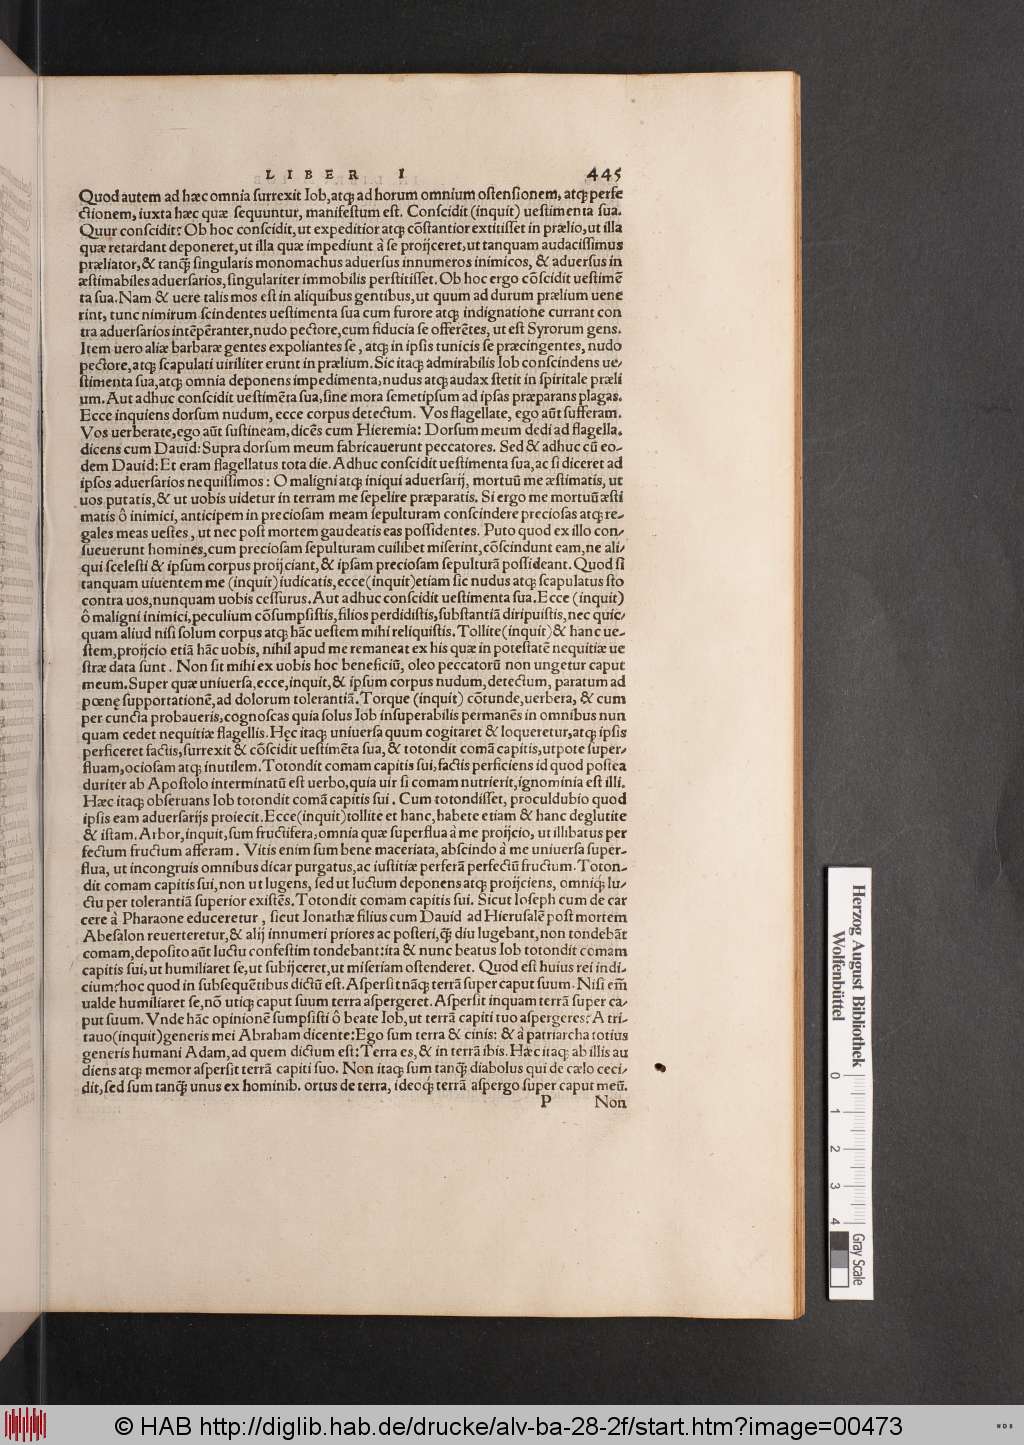 LIBER I 445
Quod autem ad hæc omnia surrexit Iob,atq; ad horum omnium ostensionem, atq; perfe
ctionem, iuxta hæc quæ sequuntur, manifestum est. Conscidit (inquit) uestimenta sua.
Quur conscidit? Ob hoc conscidit,ut expeditior atq; cõstantior extitisset in prælio,ut illa
quæ retardant deponeret,ut illa quæ impediunt à se proijceret,ut tanquam audacissimus
præliator,& tanq̃ singularis monomachus aduersus innumeros inimicos, & aduersus in
æstimabiles aduersarios,singulariter immobilis perstitisset. Ob hoc ergo cõscidit uestimẽ
ta sua. Nam & uere talis mos est in aliquibus gentibus,ut quum ad durum prælium uene
rint, tunc nimirum scindentes uestimenta sua cum furore atq; indignatione currant con
tra aduersarios intẽpẽranter,nudo pectore,cum fiducia se offerẽtes, ut est Syrorum gens.
Item uero aliæ barbaræ gentes expoliantes se, atq; in ipsis tunicis se præcingentes, nudo
pectore,atq; scapulati uiriliter erunt in prælium. Sic itaq; admirabilis Iob conscindens ue-
stimenta sua,atq; omnia deponens impedimenta,nudus atq; audax stetit in spiritale præli
um. Aut adhuc conscidit uestimẽta sua,sine mora semetipsum ad ipsas præparans plagas.
Ecce inquiens dorsum nudum, ecce corpus detectum. Vos flagellate, ego aũt sufferam.
Vos uerberate,ego aũt sustineam,dicẽs cum Hieremia: Dorsum meum dedi ad flagella.
dicens cum Dauid: Supra dorsum meum fabricauerunt peccatores. Sed & adhuc cũ eo-
dem Dauid: Et eram flagellatus tota die. Adhuc conscidit uestimenta sua,ac si diceret ad
ipsos aduersarios nequissimos: O maligni atq; iniqui aduersarij, mortuũ me æstimatis, ut
uos putatis,& ut uobis uidetur in terram me sepelire præparatis. Si ergo me mortuũ æsti
matis ô inimici, anticipem in preciosam meam sepulturam conscindere preciosas atq; re-
gales meas uestes, ut nec post mortem gaudeatis eas possidentes. Puto quod ex illo con-
sueuerunt homines,cum preciosam sepulturam cuilibet miserint,cõscindunt eam,ne ali-
qui scelesti & ipsum corpus proijciant,& ipsam preciosam sepulturã possideant. Quod si
tanquam uiuentem me (inquit)iudicatis,ecce(inquit)etiam sic nudus atq; scapulatus sto
contra uos,nunquam uobis cessurus. Aut adhuc conscidit uestimenta sua. Ecce (inquit)
ô maligni inimici,peculium cõsumpsistis,filios perdidistis,substantiã diripuistis,nec quic-
quam aliud nisi solum corpus atq; hãc uestem mihi reliquistis. Tollite(inquit)& hanc ue-
stem,proijcio etiã hãc uobis, nihil apud me remaneat ex his quæ in potestatẽ nequitiæ ue
stræ data sunt. Non sit mihi ex uobis hoc beneficiũ, oleo peccatorũ non ungetur caput
meum. Super quæ uniuersa,ecce,inquit,& ipsum corpus nudum,detectum, paratum ad
pœnę supportationẽ,ad dolorum tolerantiã. Torque (inquit) cõtunde,uerbera, & cum
per cuncta probaueris,cognoscas quia solus Iob insuperabilis permanẽs in omnibus nun
quam cedet nequitiæ flagellis. Hęc itaq; uniuersa quum cogitaret & loqueretur,atq; ipsis
perficeret factis,surrexit & cõscidit uestimẽta sua,& totondit comã capitis,utpote super-
fluam,ociosam atq; inutilem. Totondit comam capitis sui,factis perficiens id quod postea
duriter ab Apostolo interminatũ est uerbo,quia uir si comam nutrierit,ignominia est illi.
Hæc itaq; obseruans Iob totondit comã capitis sui. Cum totondisset, proculdubio quod
ipsis eam aduersarijs proiecit. Ecce(inquit)tollite et hanc,habete etiam & hanc deglutite
& istam. Arbor,inquit,sum fructifera,omnia quæ superflua à me proijcio, ut illibatus per
fectum fructum afferam. Vitis enim sum bene maceriata, abscindo à me uniuersa super-
flua, ut incongruis omnibus dicar purgatus,ac iustitiæ perferã perfectũ fructum. Toton-
dit comam capitis sui,non ut lugens, sed ut luctum deponens atq; proijciens, omniq; lu-
ctu per tolerantiã superior existẽs. Totondit comam capitis sui. Sicut Ioseph cum de car
cere à Pharaone educeretur, sicut Ionathæ filius cum Dauid ad Hierusalẽ post mortem
Abesalon reuerteretur,& alij innumeri priores ac posteri,q̃ diu lugebant,non tondebãt
comam,deposito aũt luctu confestim tondebant:ita & nunc beatus Iob totondit comam
capitis sui,ut humiliaret se,ut subijceret,ut miseriam ostenderet. Quod est huius rei indi-
cium?hoc quod in subsequẽtibus dictũ est. Aspersit nãq; terrã super caput suum. Nisi em̃
ualde humiliaret se,nõ utiq; caput suum terra aspergeret. Aspersit inquam terrã super ca-
put suum. Vnde hãc opinionẽ sumpsisti ô beate Iob,ut terrã capiti tuo aspergeres? A tri-
tauo(inquit)generis mei Abraham dicente:Ego sum terra & cinis: & à patriarcha totius
generis humani Adam,ad quem dictum est: Terra es,& in terrã ibis. Hæc itaq; ab illis au
diens atq; memor aspersit terrã capiti suo. Non itaq; sum tanq̃ diabolus qui de cælo ceci-
dit,sed sum tanq̃ unus ex hominib. ortus de terra, ideoq; terrã aspergo super caput meũ.
P Non
Herzog August Bibliothek
Wolfenbüttel
0 1 2 3 4
Gray Scale
© HAB http://diglib.hab.de/drucke/alv-ba-28-2f/start.htm?image=00473